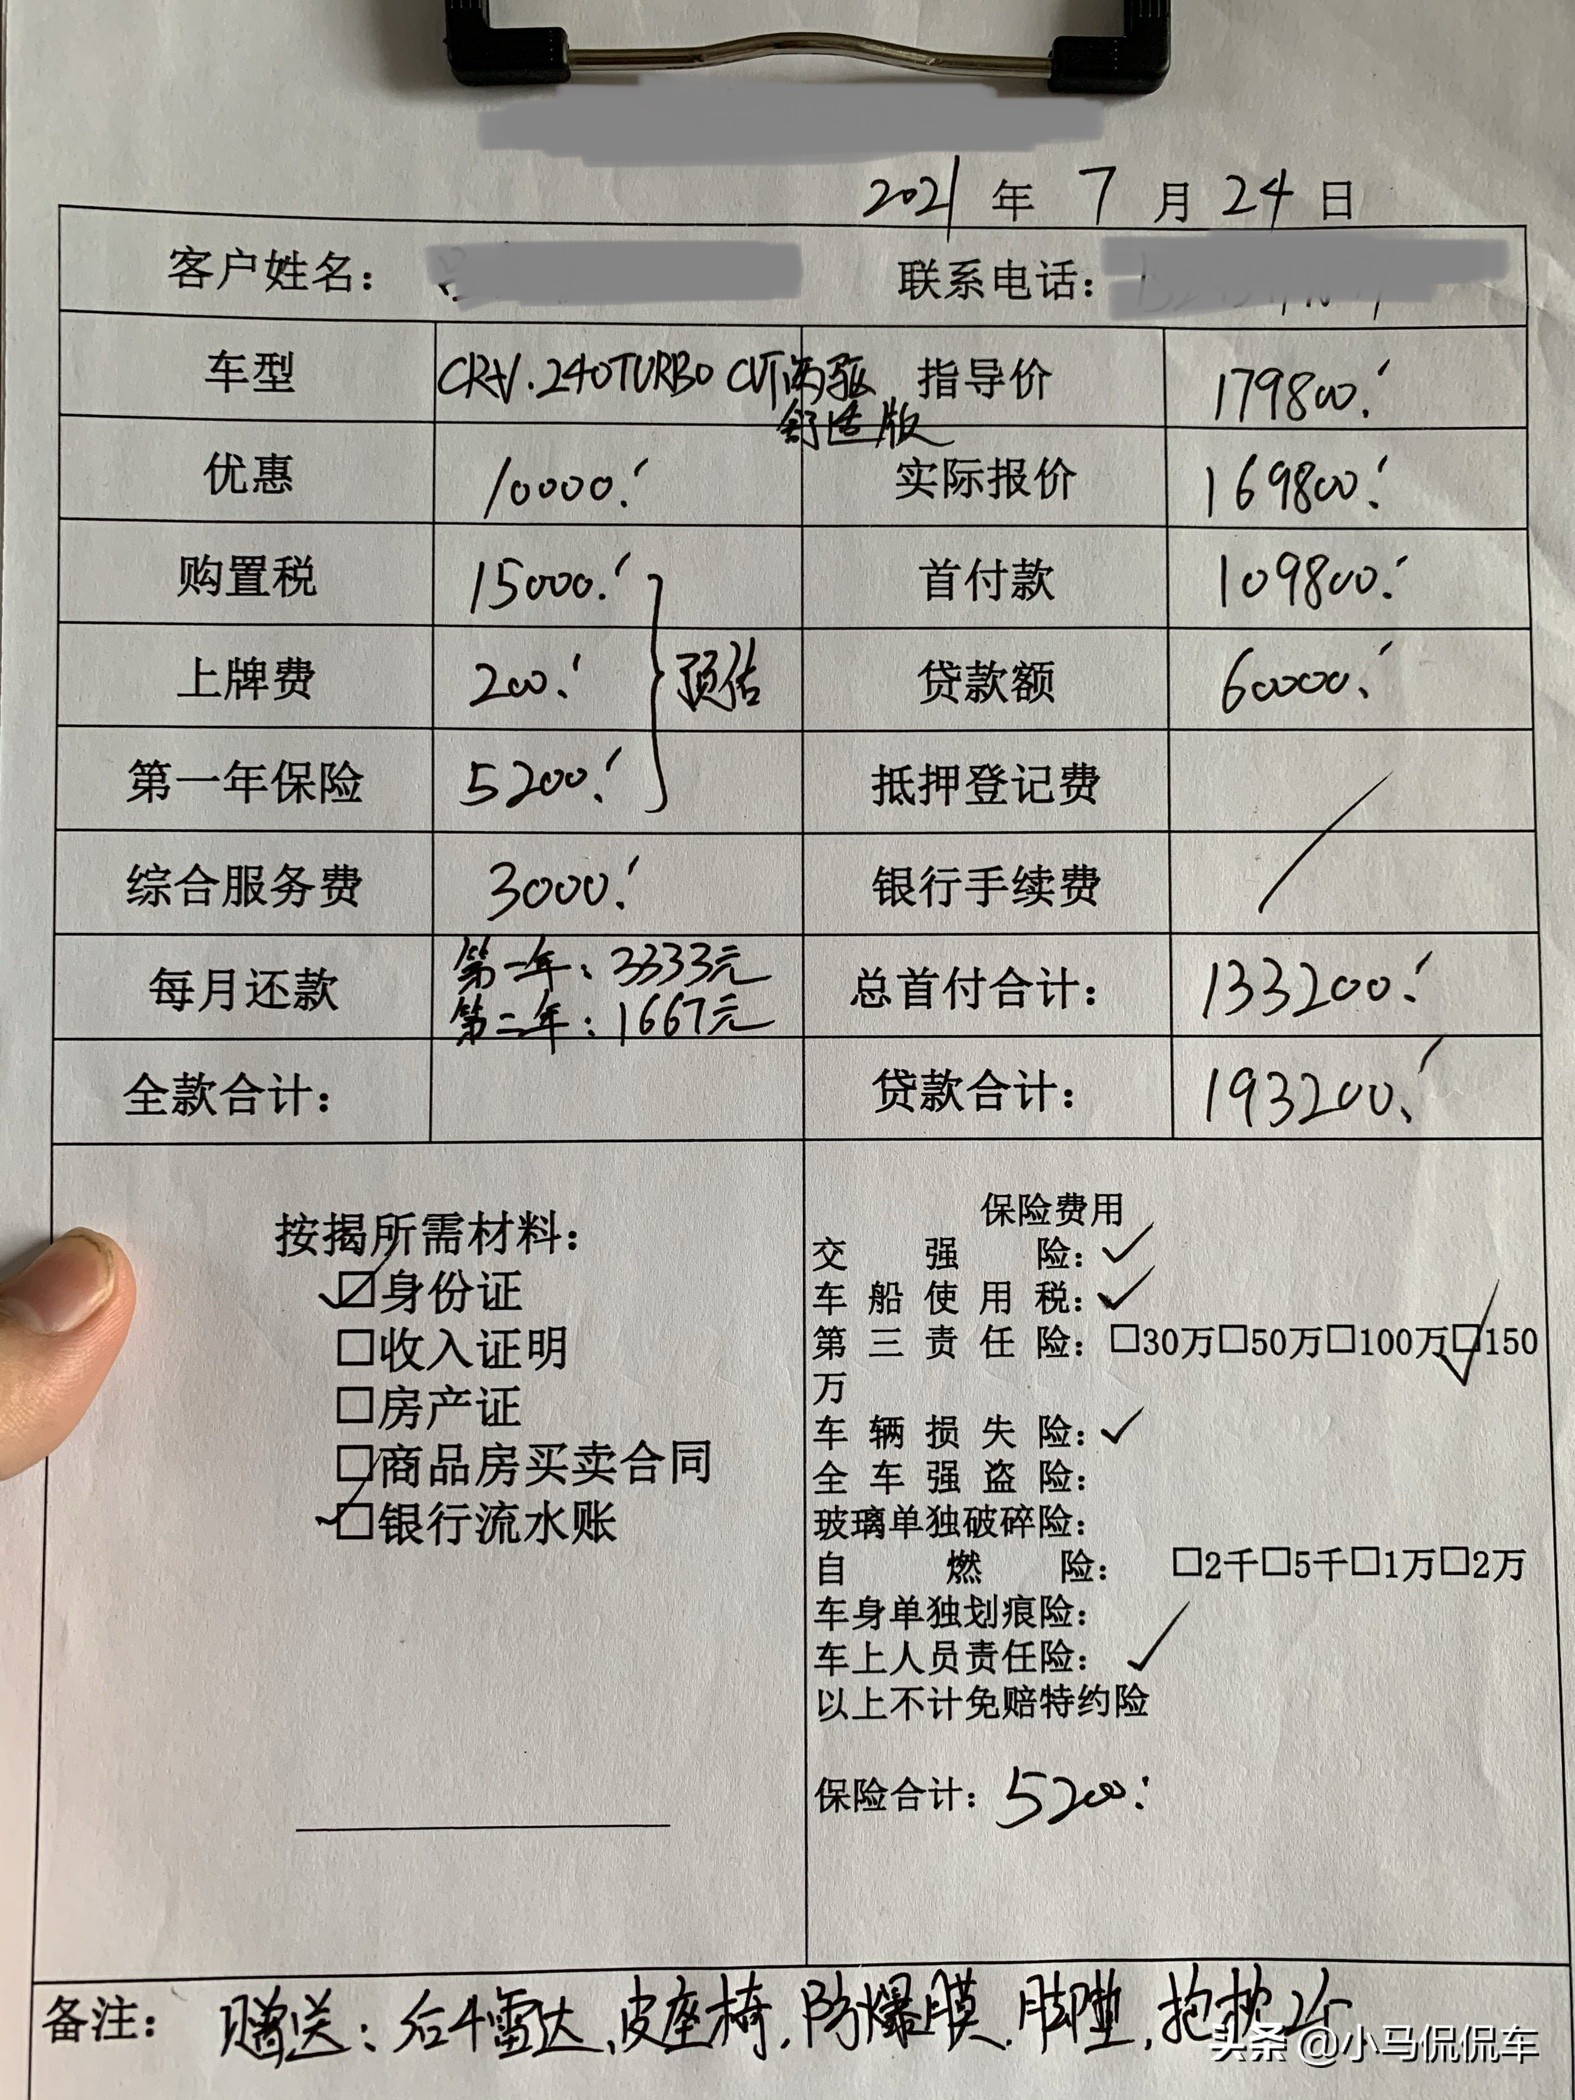 2021 年 7 月 24 日
客户姓名： 联系电话：
车型 CRV.240TURBO CVT两驱舒适版 指导价 179800.
优惠 10000. 实际报价 169800.
购置税 15000. 首付款 109800.
上牌费 200. 预估 贷款额 60000.
第一年保险 5200. 抵押登记费
综合服务费 3000. 银行手续费
每月还款 第一年：3333元 总首付合计： 133200.
第二年：1667元
全款合计： 贷款合计： 193200.
按揭所需材料：
身份证
收入证明
房产证
商品房买卖合同
银行流水账
保险费用
交强险：✓
车船使用税：✓
第三责任险：□30万□50万□100万□150
万
车辆损失险：✓
全车强盗险：
玻璃单独破碎险：
自燃险： □2千□5千□1万□2万
车身单独划痕险：
车上人员责任险：✓
以上不计免赔特约险
保险合计：5200.
备注： 赠送：后4雷达、皮座椅，防爆膜，脚垫，抱枕
头条 @小马侃侃车